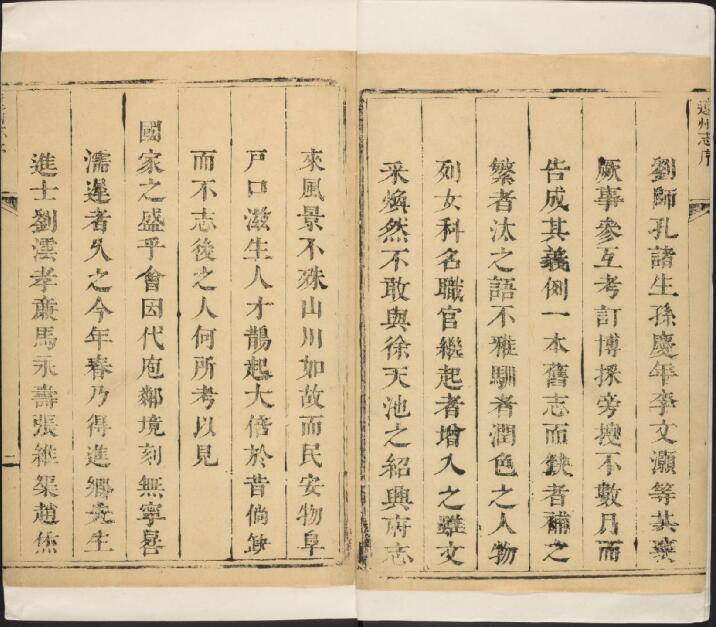 遼州志序
劉師孔諸生孫慶年李文灝等共襄
厥事參互考訂博採旁搜不數月而
告成其義例一本舊志而缺者補之
繁者汰之語不雅馴者潤色之人物
列女科名職官繼起者增入之雖文
采煥然不敢與徐天池之紹興府志
來風景不殊山川如故而民安物阜
戶口滋生人才鵲起大倍於昔倘缺
而不志後之人何所考以見
國家之盛乎會因代庖鄰境刻無寧晷
濡遲者久之今年春乃得進鄉先生
進士劉澐孝廉馬永壽張維渠趙焦
二